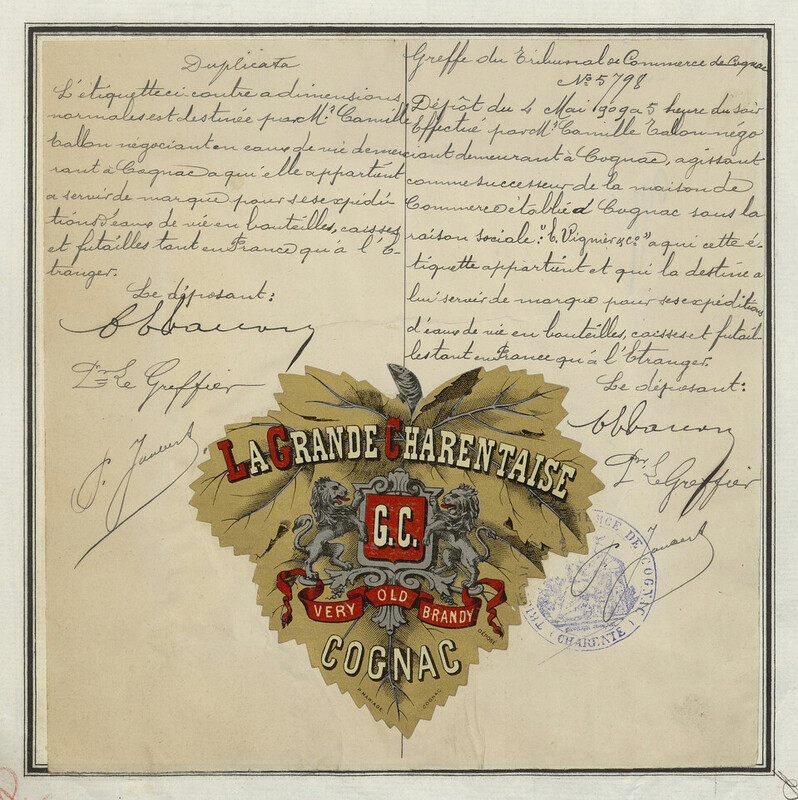 Duplicata
L'étiquette ci contre a dimensions
normales est destinée par Mr. Camille
Talon négociant en eaux de vie demeu
rant à Cognac a qui elle appartient
a servir de marque pour ses expédi
tions d'eaux de vie en bouteilles, caisses
et futailles tant en France qu'à l'E-
tranger.
Le déposant:
Pr. Le Greffier
Greffe du Tribunal de Commerce de Cognac
No. 5798
Dépôt du 4 Mai 1909 a 5 heure du soir
Effectué par Mr. Camille Talon négo
ciant demeurant à Cognac, agissant
comme successeur de la maison de
Commerce établie à Cognac sous la
raison sociale: "E. Vignier & Co" a qui cette é-
tiquette appartient et qui la destine a
lui servir de marque pour ses expéditions
d'eaux de vie en bouteilles, caisses et futail
les tant en France qu'à l'Etranger.
Le déposant:
Pr. Le Greffier
LA GRANDE CHARENTAISE
G.C.
VERY OLD BRANDY
DÉPOSÉ
COGNAC
P. MARIAGE COGNAC
DE COGNAC
(CHARENTE)